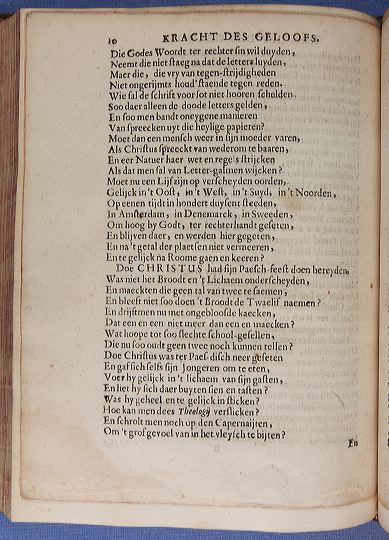 10 KRACHT DES GELOOFS.
Die Godes Woordt ter rechter sin wil duyden,
Neemt die niet staeg na dat de letters luyden,
Maer die, die vry van tegen-strijdigheden
Niet ongerijmts houd' staende tegen reden.
Wie sal de schrift voor sot niet hooren schelden
Soo daer alleen de doode letters gelden,
En soo men bandt oneygene manieren
Van spreecken uyt die heylige papieren?
Moet dan een mensch weer in sijn moeder varen,
Als Christus spreeckt van wederom te baaren,
En eer Natuer haer wet en regels strijcken
Als dat men sal van Letter-galmen wijcken?
Moet nu een Lijf zijn op verscheyden oorden,
Gelijck in 't Oost, in 't West, in 't Suyd, in 't Noorden,
Op eenen tijdt in hondert duysent steeden,
In Amsterdam, in Denemarck, in Sweeden,
Om hoog by Godt, ter rechterhandt geseten,
En blijven daer, en werden hier gegeten,
En na 't getal der plaetsen niet vermeeren,
En te gelijck na Roome gaen en keeren?
Doe CHRISTUS had sijn Paesch-feest doen bereyden,
Was niet het Broodt en 't Lichaem onderscheyden,
En maeckten die geen tal van twee te saemen,
En bleeft niet soo doen 't Broodt de Twaelif naemen?
En drijft men nu met ongebloosde kaecken,
Dat een en een niet meer dan een en maecken?
Wat hoope tot soo slechte school-gesellen,
Die nu soo oudt geen twee noch kunnen tellen?
Doe Christus was ter Paes-disch neer geseten
En gaf sich selfs sijn Jongeren om te eten,
Voer hy gelijck in 't lichaem van sijn gasten,
En liet hy sich daer buyten sien en tasten?
Was hy geheel en te gelijck in sticken?
Hoe kan men dees Theologij verslicken?
En schrolt men noch op den Capernaijten,
Om 't grof gevoel van in het vleysch te bijten?
En